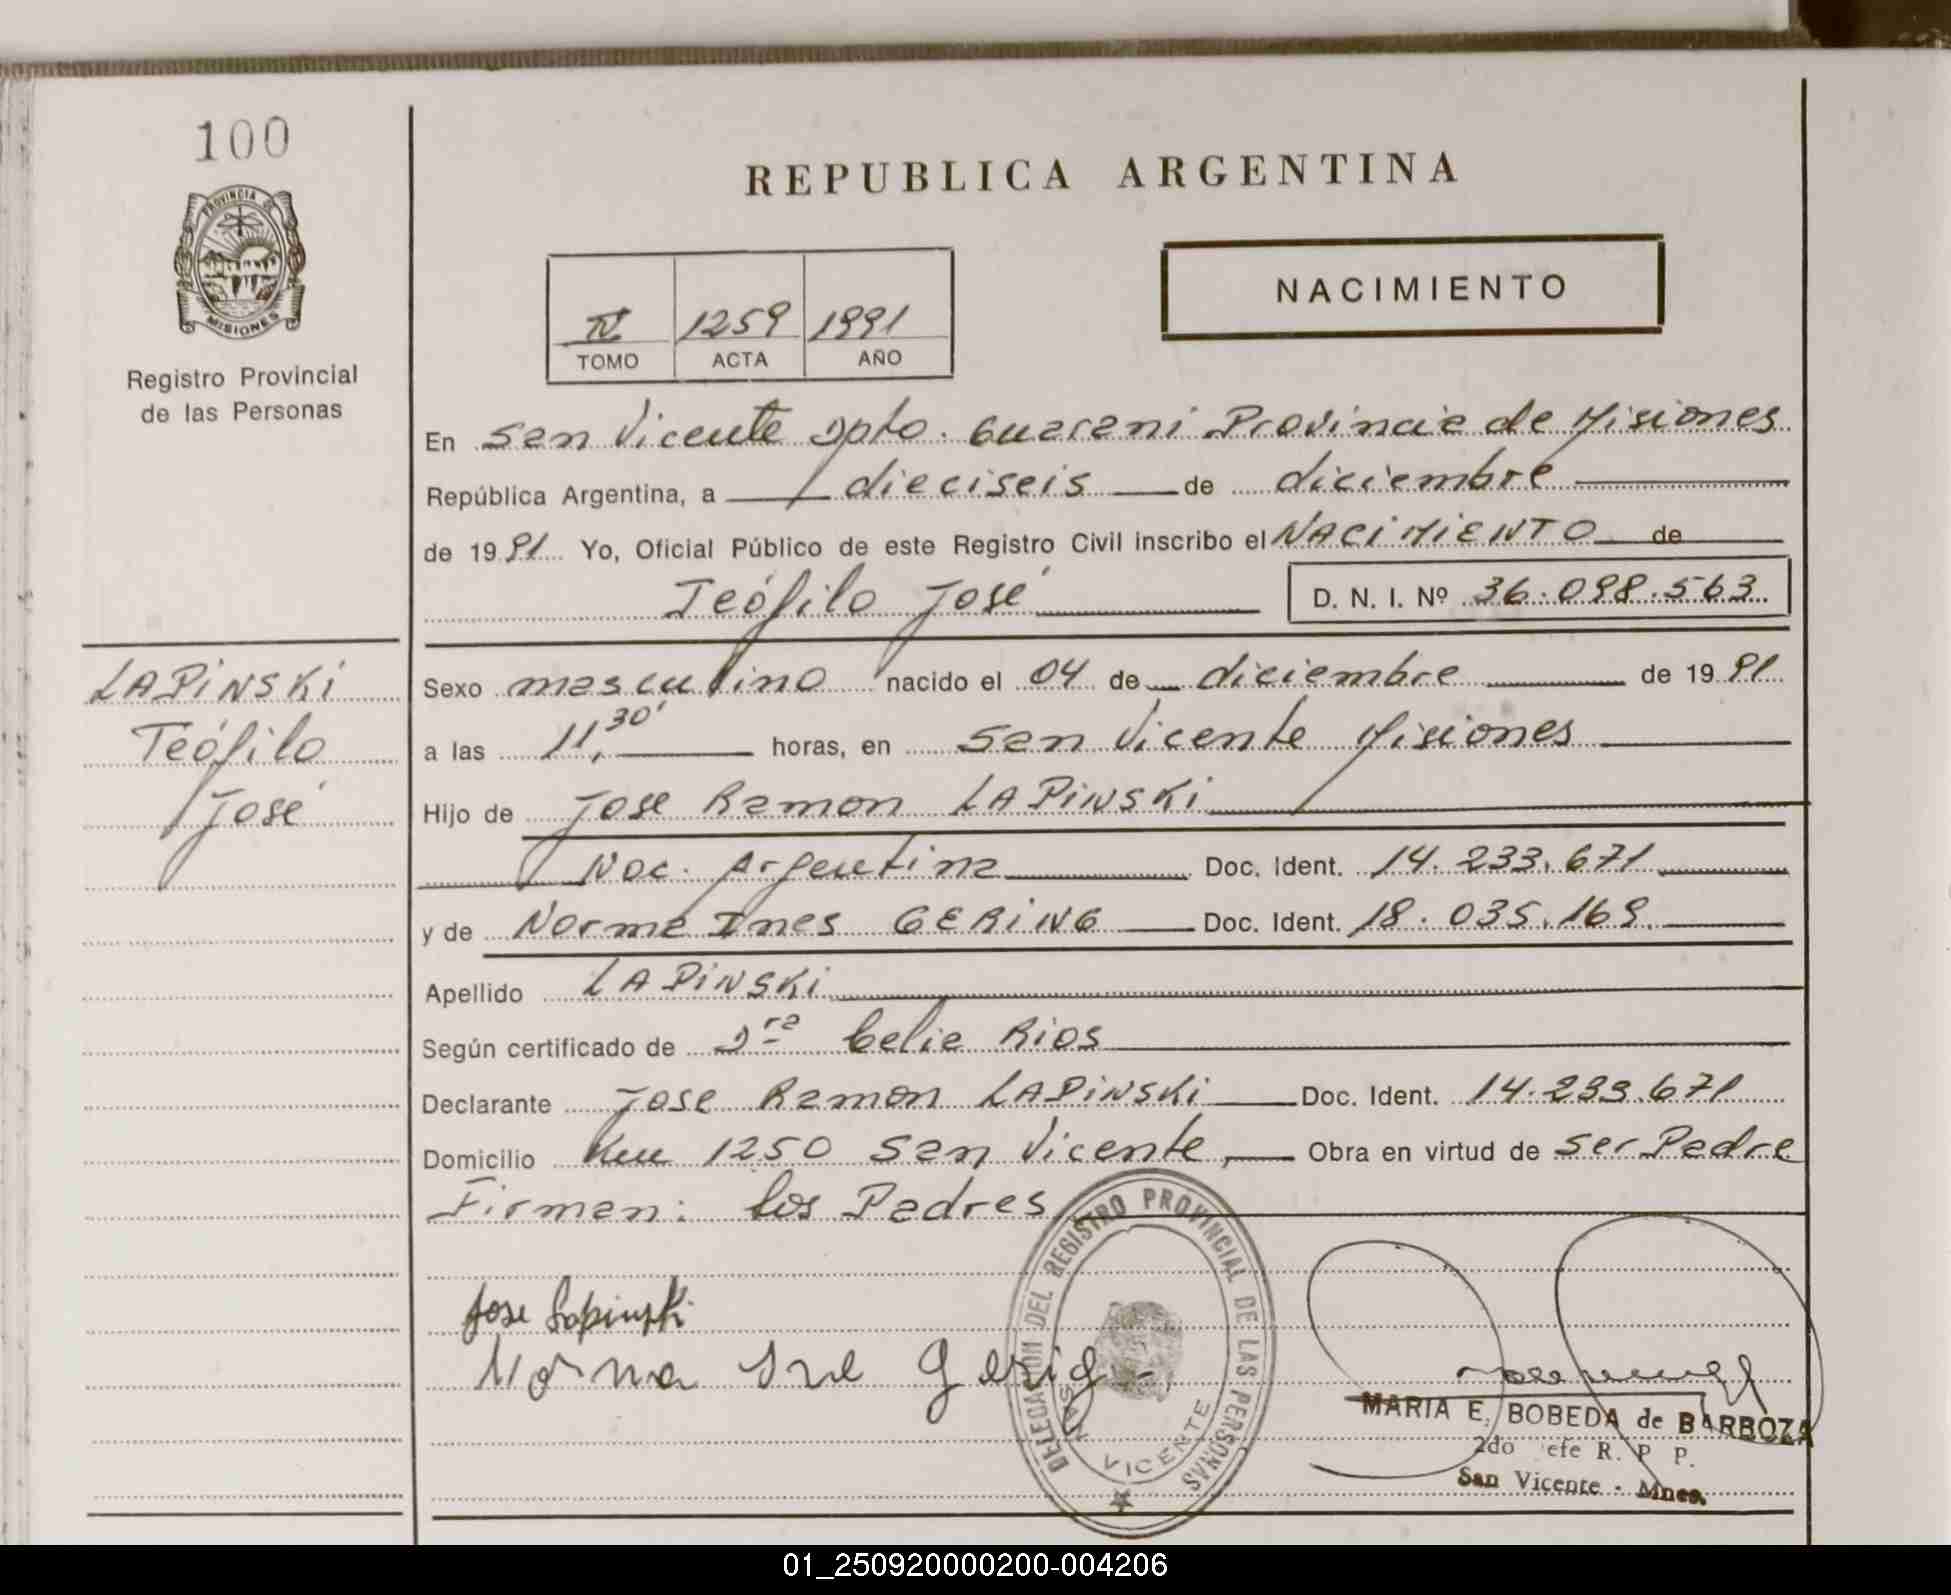 100
PROVINCIA DE
MISIONES
Registro Provincial
de las Personas
REPUBLICA ARGENTINA
NACIMIENTO
IV 1259 1991
TOMO ACTA AÑO
En San Vicente Dpto. Guarani Provincia de Misiones
República Argentina, a dieciseis de diciembre
de 1991 Yo, Oficial Público de este Registro Civil inscribo el NACIMIENTO de
Teófilo José D. N. I. Nº 36.098.563
LAPINSKI
Teófilo
José
Sexo masculino nacido el 04 de diciembre de 1991
a las 11,30' horas, en San Vicente Misiones
Hijo de Jose Ramon LAPINSKI
Nac. Argentina Doc. Ident. 14.233.671
y de Norma Ines GERING Doc. Ident. 18.035.169.
Apellido LAPINSKI
Según certificado de Dra Celia Rios
Declarante Jose Ramon LAPINSKI Doc. Ident. 14.233.671
Domicilio Km 1250 San Vicente, Obra en virtud de ser Padre
Firman: los Padres
Jose Lapinski
Norma Ine Gerig
DELEGACION DEL REGISTRO PROVINCIAL DE LAS PERSONAS
SAN VICENTE
MARIA E. BOBEDA de BARBOZA
2do efe R. P P.
San Vicente - Mnes.
01_250920000200-004206